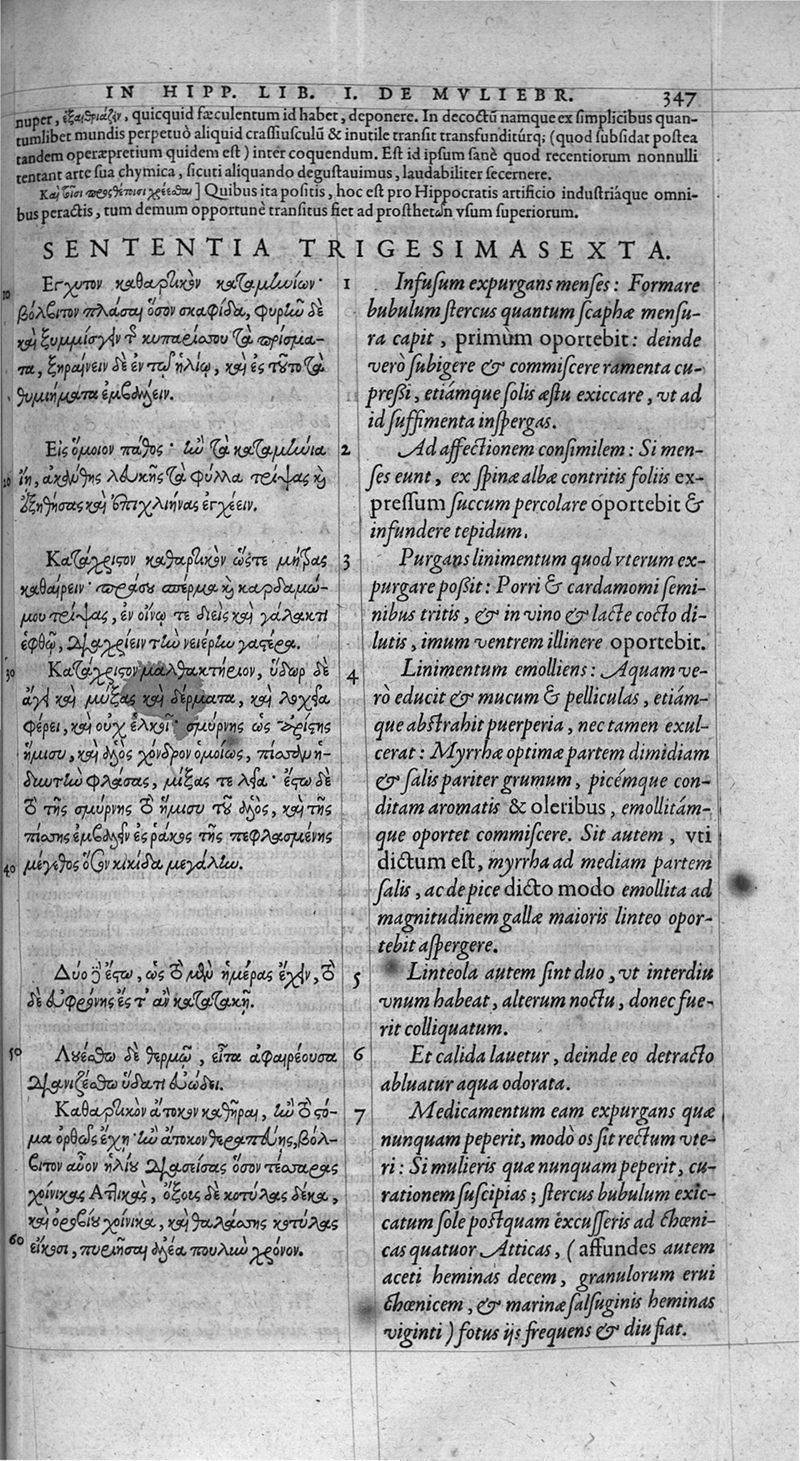 IN HIPP. LIB. I. DE MVLIEBR. 347
nuper, quicquid fæculentum id habet, deponere. In decoctũ namque ex simplicibus quan-
tumlibet mundis perpetuò aliquid crassiusculũ & inutile transit transfunditúrq; (quod subsidat postea
tandem operæpretium quidem est) inter coquendum. Est id ipsum sanè quod recentiorum nonnulli
tentant arte sua chymica, sicuti aliquando degustauimus, laudabiliter secernere.
] Quibus ita positis, hoc est pro Hippocratis artificio industriáque omni-
bus peractis, tum demum opportunè transitus fiet ad prosthetωn vsum superiorum.
SENTENTIA TRIGESIMASEXTA.
10
Ἔγχυτον καθαρτικὸν καταμηνίων·
βόλβιτον πλάσαι ὅσον σκαφίδα, φυρῶν δὲ
καὶ ξυμμίσγειν τ κυπαρίσσου τὰ πρίσμα-
τα, ξηραίνειν δὲ ἐν τῷ ἡλίῳ, καὶ ἐς τοῦτο τὰ
θυμιήματα ἐμβάλλειν.
Εἰς ὅμοιον πάθος· ἢν τὰ καταμήνια
20
ἴῃ, ἀκάνθης λευκῆς τὰ φύλλα τρίψας καὶ
διηθήσας καὶ ἐπιχλιήνας ἐγχέειν.
Κατάχριστον καθαρτικὸν ὥστε μήτρας
καθαίρειν· πράσου σπέρμα καὶ καρδαμώ-
μου τρίψας, ἐν οἴνῳ τε διεὶς καὶ γάλακτι
ἑφθῷ, διαχρίειν τὴν νειέρην γαστέρα.
30
Κατάχριστον μαλθακτήριον, ὕδωρ δὲ
ἄγει καὶ μύξας καὶ δέρματα, καὶ λοχεῖα
φέρει, καὶ οὐχ ἑλκοῖ· σμύρνης ὡς ἀρίστης
ἥμισυ, καὶ ἁλὸς χόνδρον ὁμοίως, πίσσαν ἡ-
δυντὴν φλάσας, μίξας τε λεῖα· ἔστω δὲ
τὸ τῆς σμύρνης τὸ ἥμισυ τοῦ ἁλὸς, καὶ τῆς
πίσσης ἐμβάλλειν ἐς ῥάκος τῆς πεφλασμένης
40
μέγεθος ὅσον κικίδα μεγάλην.
Δύο δ ἔστω, ὡς τὸ μὲν ἡμέρας ἔχειν, τὸ
δὲ εὐφρόνης ἔς τ' ἂν κατατακῇ.
50
Λουέσθω δὲ θερμῷ, εἶτα ἀφαιρέουσα
διανιζέσθω ὕδατι εὐώδει.
Καθαρτικὸν ἄτοκον καθῆραι, ἢν τὸ στό-
μα ὀρθῶς ἔχῃ· ἢν ἄτοκον θεραπεύῃς, βόλ-
βιτον αὖον ἡλίου διασείσας ὅσον τέσσαρας
χοίνικας Ἀττικὰς, ὄξους δὲ κοτύλας δέκα,
καὶ ὀρόβου χοίνικα, καὶ θαλάσσης κοτύλας
60
εἴκοσι, πυριῆσαι ἁλέα πουλὺν χρόνον.
1 Infusum expurgans menses: Formare
bubulum stercus quantum scaphæ mensu-
ra capit, primùm oportebit: deinde
verò subigere & commiscere ramenta cu-
pressi, etiámque solis æstu exiccare, vt ad
id suffimenta inspergas.
2 Ad affectionem consimilem: Si men-
ses eunt, ex spinæ albæ contritis foliis ex-
pressum succum percolare oportebit &
infundere tepidum.
3 Purgans linimentum quod vterum ex-
purgare possit: Porri & cardamomi semi-
nibus tritis, & in vino & lacte cocto di-
lutis, imum ventrem illinere oportebit.
4 Linimentum emolliens: Aquam ve-
rò educit & mucum & pelliculas, etiám-
que abstrahit puerperia, nec tamen exul-
cerat: Myrrhæ optimæ partem dimidiam
& salis pariter grumum, picémque con-
ditam aromatis & oleribus, emollitám-
que oportet commiscere. Sit autem, vti
dictum est, myrrha ad mediam partem
salis, ac de pice dicto modo emollita ad
magnitudinem gallæ maioris linteo opor-
tebit aspergere.
5 Linteola autem sint duo, vt interdiu
vnum habeat, alterum noctu, donec fue-
rit colliquatum.
6 Et calida lauetur, deinde eo detracto
abluatur aqua odorata.
7 Medicamentum eam expurgans quæ
nunquam peperit, modò os sit rectum vte-
ri: Si mulieris quæ nunquam peperit, cu-
rationem suscipias; stercus bubulum exic-
catum sole postquam excusseris ad chœni-
cas quatuor Atticas, (affundes autem
aceti heminas decem, granulorum erui
chœnicem, & marinæ salsuginis heminas
viginti) fotus ijs frequens & diu fiat.